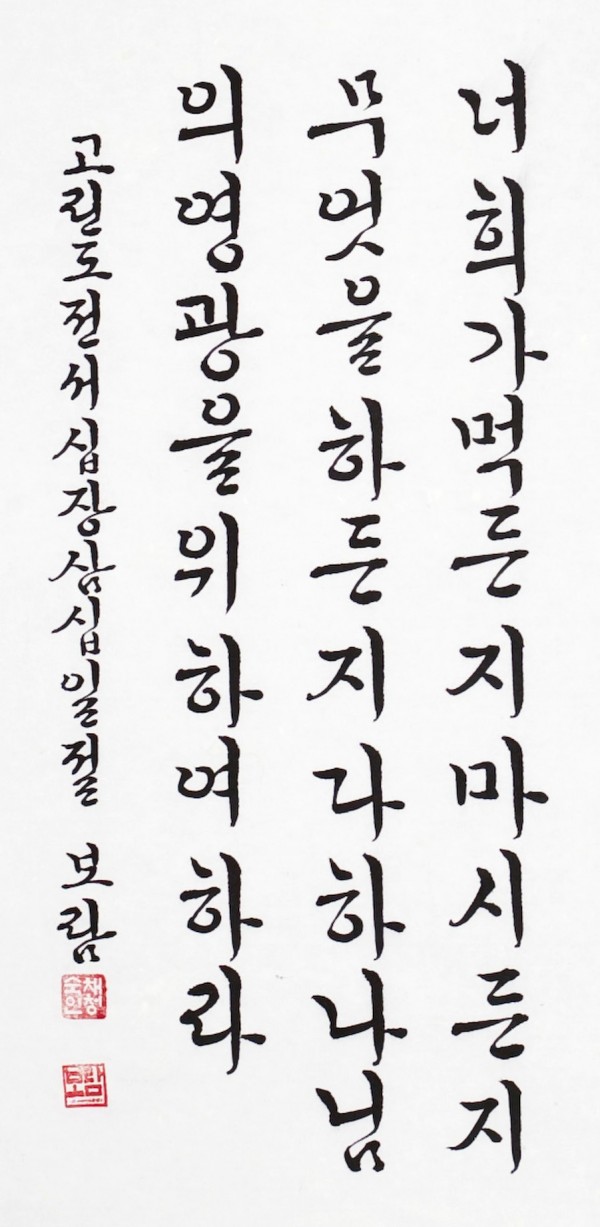 너희가먹든지마시든지
무엇을하든지다하나님
의영광을위하여하라
고린도전서십장삼십일절 보람